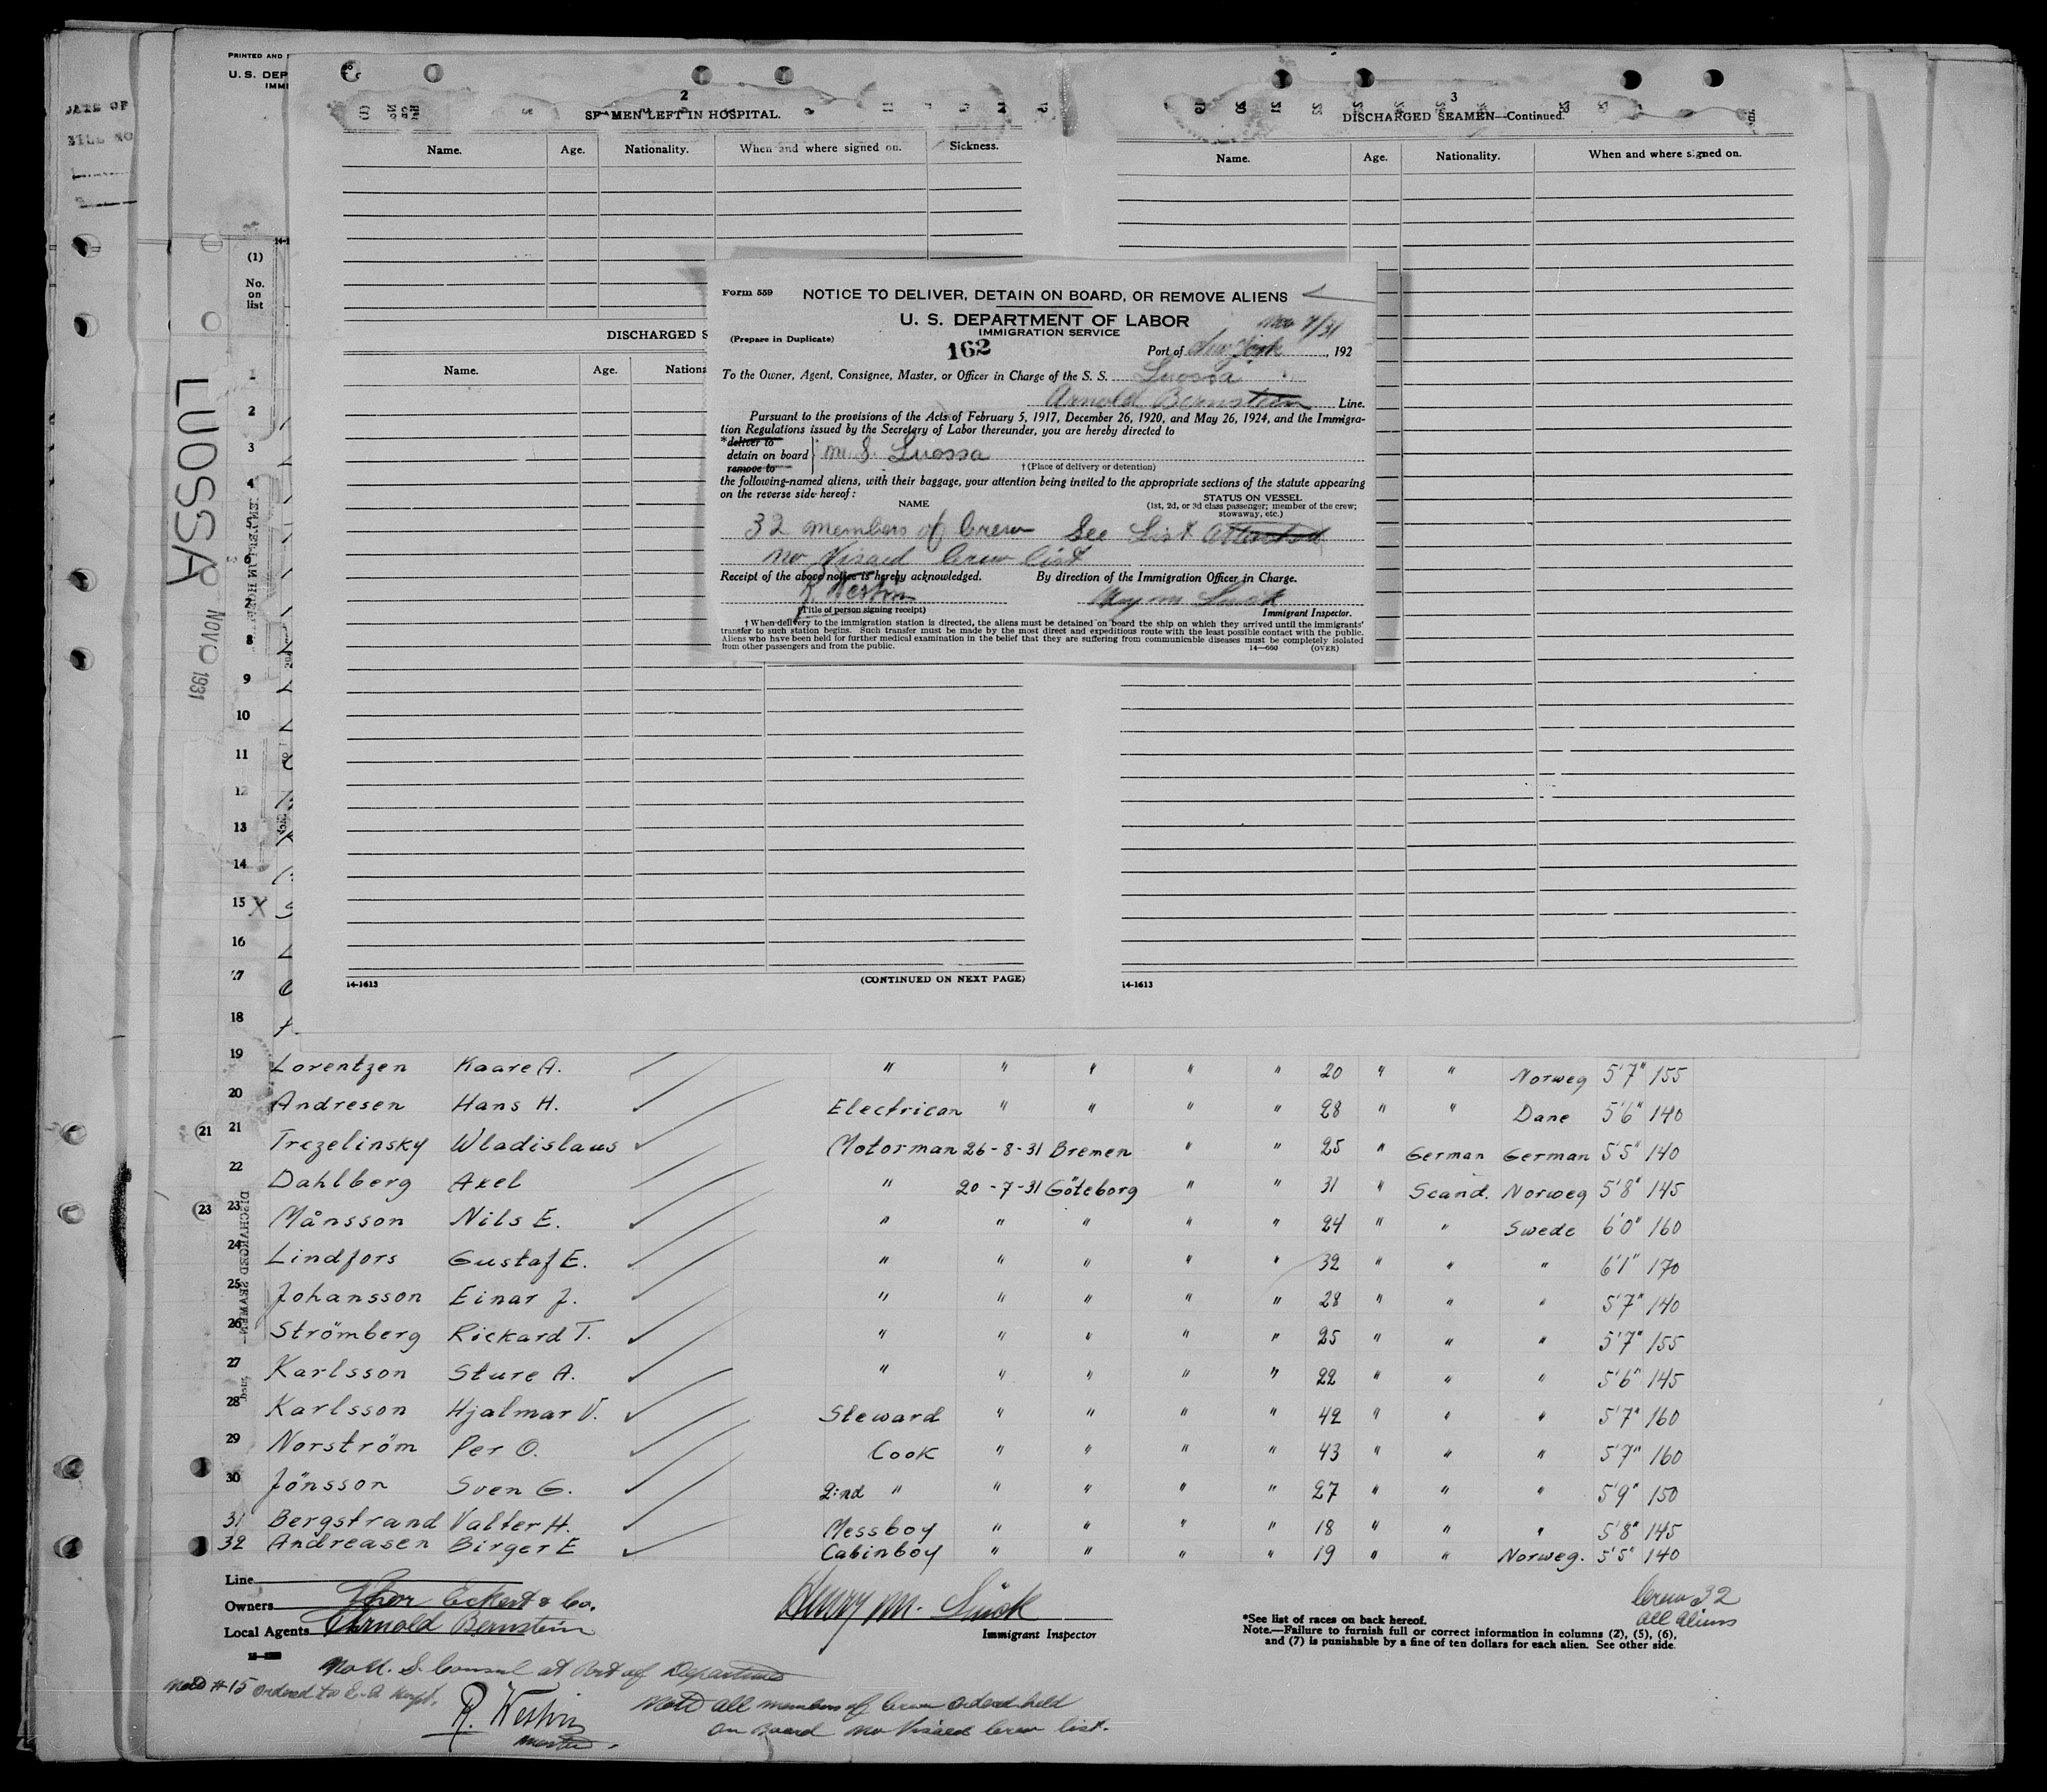 PRINTED AND
U. S. DEP
IMMI
DATE OF
2
SEAMEN LEFT IN HOSPITAL.
Name. Age. Nationality. When and where signed on. Sickness.
3
DISCHARGED SEAMEN—Continued.
Name. Age. Nationality. When and where signed on.
(1)
No.
on
list
DISCHARGED S
Name. Age. Nationa
LUOSSA
NOV 1931
Form 559 NOTICE TO DELIVER, DETAIN ON BOARD, OR REMOVE ALIENS
U. S. DEPARTMENT OF LABOR
IMMIGRATION SERVICE
(Prepare in Duplicate)
162
Nov 7/31
Port of New York, 192
To the Owner, Agent, Consignee, Master, or Officer in Charge of the S. S. Luossa
Arnold Bernstein Line.
Pursuant to the provisions of the Acts of February 5, 1917, December 26, 1920, and May 26, 1924, and the Immigra-
tion Regulations issued by the Secretary of Labor thereunder, you are hereby directed to
*deliver to
detain on board
remove to
M. S. Luossa
†(Place of delivery or detention)
the following-named aliens, with their baggage, your attention being invited to the appropriate sections of the statute appearing
on the reverse side hereof:
NAME
STATUS ON VESSEL
(1st, 2d, or 3d class passenger; member of the crew;
stowaway, etc.)
32 members of Crew See List Attached
No Visaed Crew list
Receipt of the above notice is hereby acknowledged. By direction of the Immigration Officer in Charge.
R. Westin
(Title of person signing receipt)
Immigrant Inspector.
†When delivery to the immigration station is directed, the aliens must be detained on board the ship on which they arrived until the immigrants'
transfer to such station begins. Such transfer must be made by the most direct and expeditious route with the least possible contact with the public.
Aliens who have been held for further medical examination in the belief that they are suffering from communicable diseases must be completely isolated
from other passengers and from the public.
14—660 (OVER)
1
2
3
4
5
6
7
8
9
10
11
12
13
14
15 X
16
17
18
14-1613 (CONTINUED ON NEXT PAGE)
14-1613
19 Lorentzen Kaare A. " " " " " 20 " " Norweg 5'7" 155
20 Andresen Hans H. Electrican " " " " 28 " " Dane 5'6" 140
(21) 21 Trczelinsky Wladislaus Motorman 26-8-31 Bremen " " 25 " German German 5'5" 140
22 Dahlberg Axel " 20-7-31 Göteborg " " 31 " Scand. Norweg 5'8" 145
(23) 23 Månsson Nils E. " " " " " 24 " " Swede 6'0" 160
24 Lindfors Gustaf E. " " " " " 32 " " " 6'1" 170
25 Johansson Einar J. " " " " " 28 " " " 5'7" 140
26 Strömberg Rickard T. " " " " " 25 " " " 5'7" 155
27 Karlsson Sture A. " " " " " 22 " " " 5'6" 145
28 Karlsson Hjalmar V. Steward " " " " 42 " " " 5'7" 160
29 Norström Per O. Cook " " " " 43 " " " 5'7" 160
30 Jönsson Sven G. 2:nd " " " " " 27 " " " 5'9" 150
31 Bergstrand Valter H. Messboy " " " " 18 " " " 5'8" 145
32 Andreasen Birger E Cabinboy " " " " 19 " " Norweg. 5'5" 140
DISCHARGED SEAMEN—
Line
Owners Thor Eckert & Co.
Local Agents Arnold Bernstein
Immigrant Inspector
*See list of races on back hereof.
Note.—Failure to furnish full or correct information in columns (2), (5), (6),
and (7) is punishable by a fine of ten dollars for each alien. See other side.
Crew 32
All Aliens
No U. S. Consul at Port of Departure
Note #15 ordered to E.
R. Westin
Master.
Note all members of Crew ordered held
on Board No Visaed Crew list.